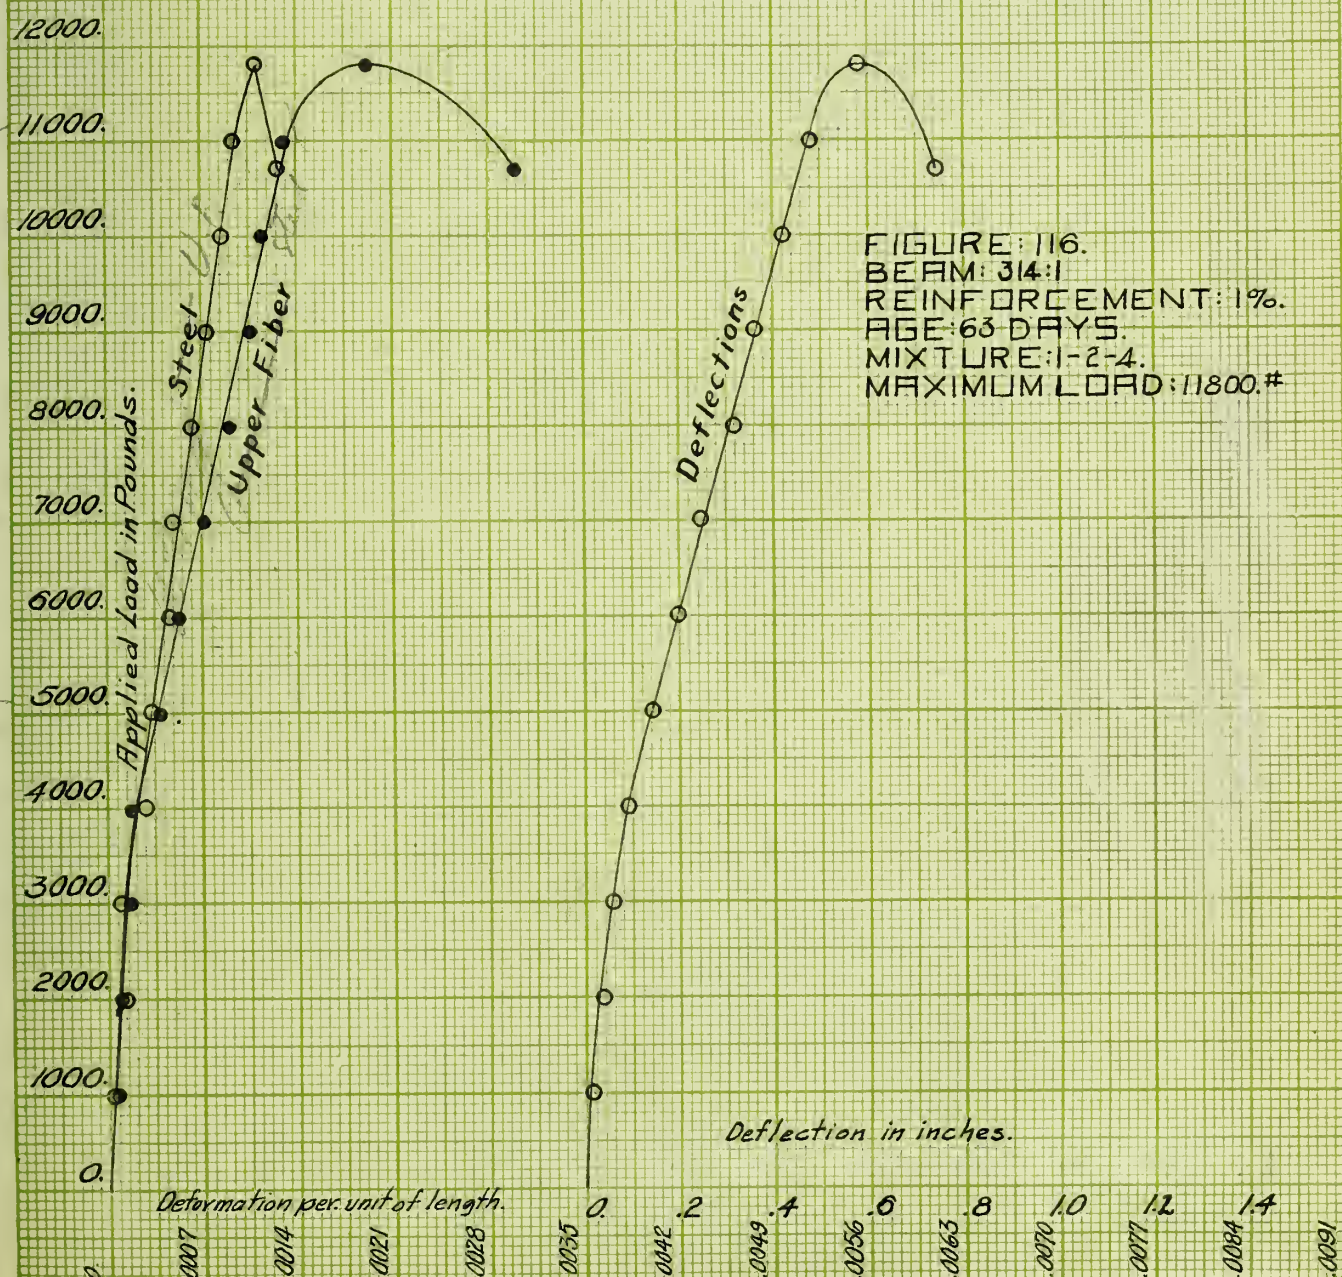 12000.
11000.
10000.
9000.
8000.
7000.
6000.
5000.
4000.
3000.
2000.
1000.
0.
Applied Load in Pounds.
Steel
Upper Fiber
Deflections
FIGURE: 116.
BEAM: 314:1
REINFORCEMENT: 1%.
AGE: 63 DAYS.
MIXTURE: 1-2-4.
MAXIMUM LOAD: 11800.#
Deflection in inches.
Deformation per unit of length.
0. .2 .4 .6 .8 1.0 1.2 1.4
0. .0007 .0014 .0021 .0028 .0035 .0042 .0049 .0056 .0063 .0070 .0077 .0084 .0091